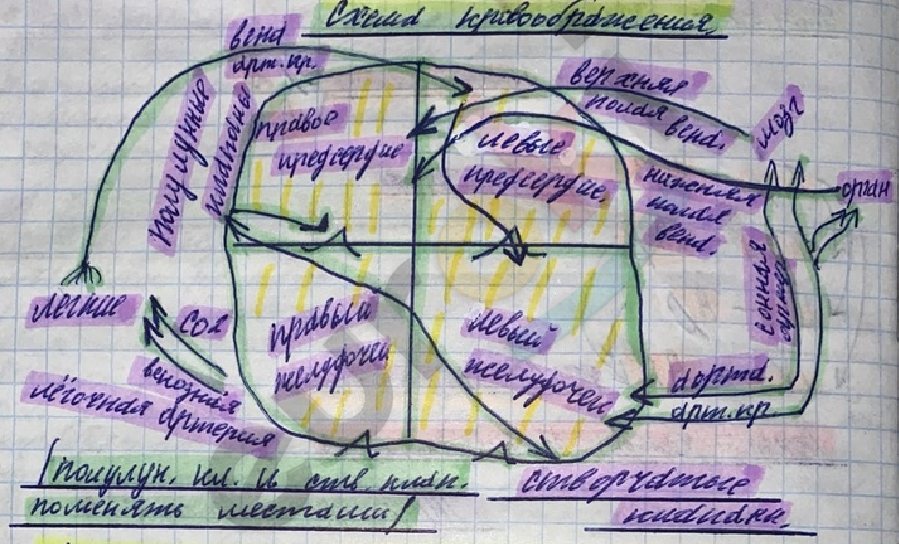 Схема кровообращения
вена
арт.кр.
полулунные
клапаны
правое
предсердие
левые
предсердие
верхняя
полая
вена.
мозг
нижняя
полая
вена.
орган
лёгкие
CO2
венозная
лёгочная артерия
правый
желудочек
левый
желудочек
сонная
аорта.
арт.кр
/полулун. кл. и ств клап.
поменять местами/
створчатые
клапаны.